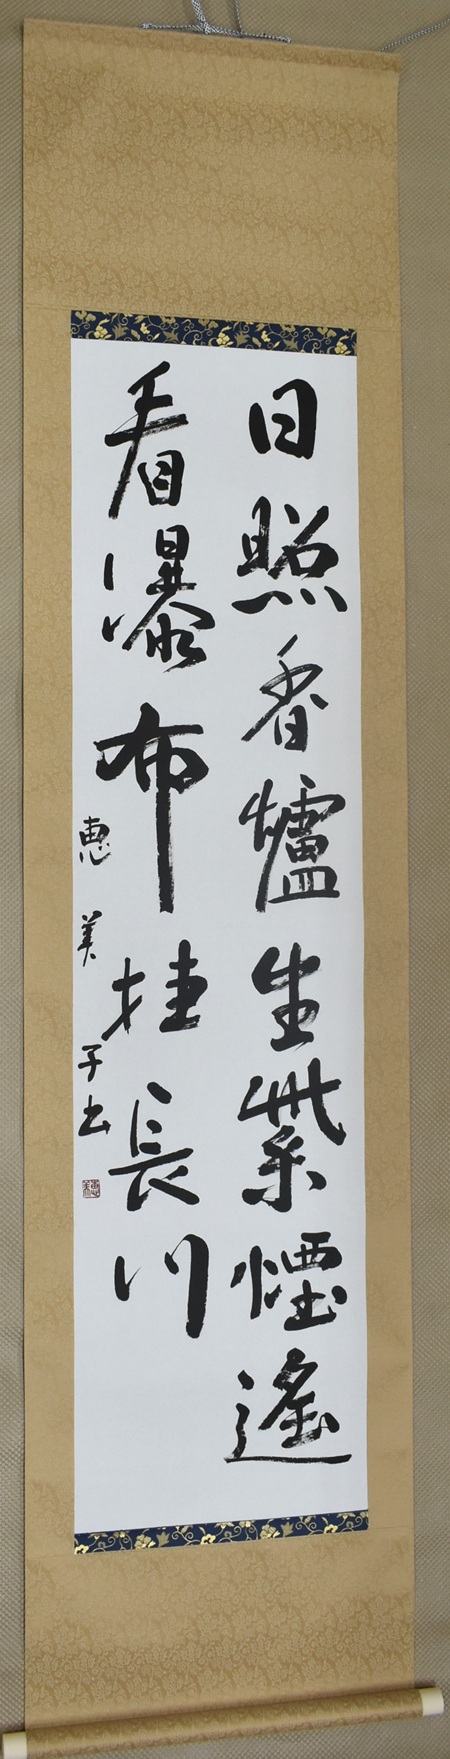 日照香爐生紫煙遙
看瀑布挂長川
惠美子书